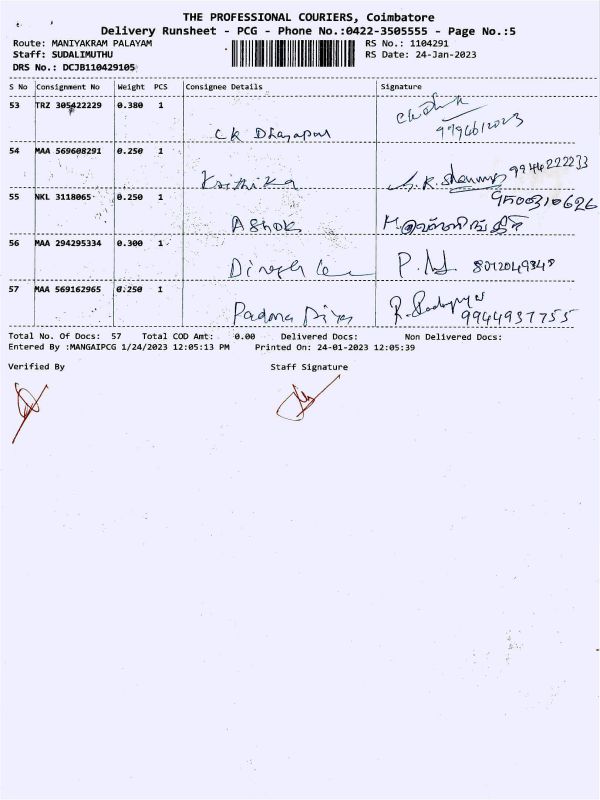 THE PROFESSIONAL COURIERS, Coimbatore
Delivery Runsheet - PCG - Phone No.:0422-3505555 - Page No.:5
Route: MANIYAKRAM PALAYAM
RS No.: 1104291
Staff: SUDALIMUTHU
RS Date: 24-Jan-2023
DRS No.: DCJB110429105
S No Consignment No Weight PCS Consignee Details Signature
53 TRZ 305422229 0.380 1
CK Dhanapal 9994612023
54 MAA 569608291 0.250 1
Krithika 9944222233
55 NKL 3118065 0.250 1 9500310626
Ashok
56 MAA 294295334 0.300 1
Dinesh 8012049348
57 MAA 569162965 0.250 1
Padma Priya 9944937755
Total No. Of Docs: 57 Total COD Amt: 0.00 Delivered Docs: Non Delivered Docs:
Entered By :MANGAIPCG 1/24/2023 12:05:13 PM Printed On: 24-01-2023 12:05:39
Verified By Staff Signature